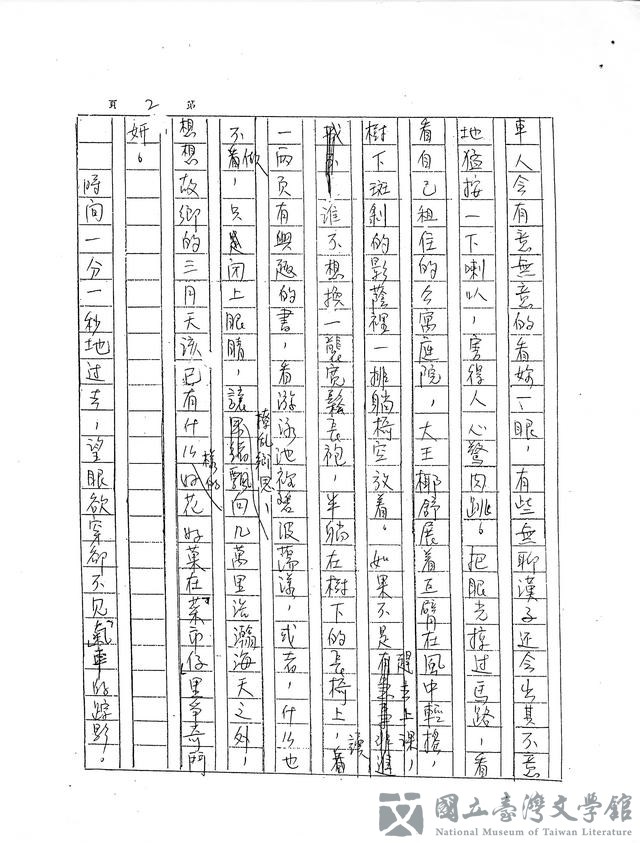 第 2 頁
車人会有意無意的看妳一眼，有些無聊漢子还会出其不意
地猛按一下喇叭，害得人心驚肉跳。把眼光掠过馬路，看
看自己租住的公寓庭院，大王椰舒展着巨臂在風中輕搖，
樹下斑剝的影蔭裡一排躺椅空放着。如果不是趕去上课，
誰不想換一襲宽鬆長袍，半躺在樹下的長椅上，讀
一兩页有興趣的書，看游泳池裡碧波蕩漾，或者，什么也
不做，只是闭上眼睛，讓撩乱鄉思，飄向几萬里浩瀚海天之外，
想想故鄉的三月天该已有什么樣的好花好葉在菜市仔里争奇鬥
妍。
時间一分一秒地过去，望眼欲穿卻不见氣車的踪影。
國立臺灣文學館
National Museum of Taiwan Literature